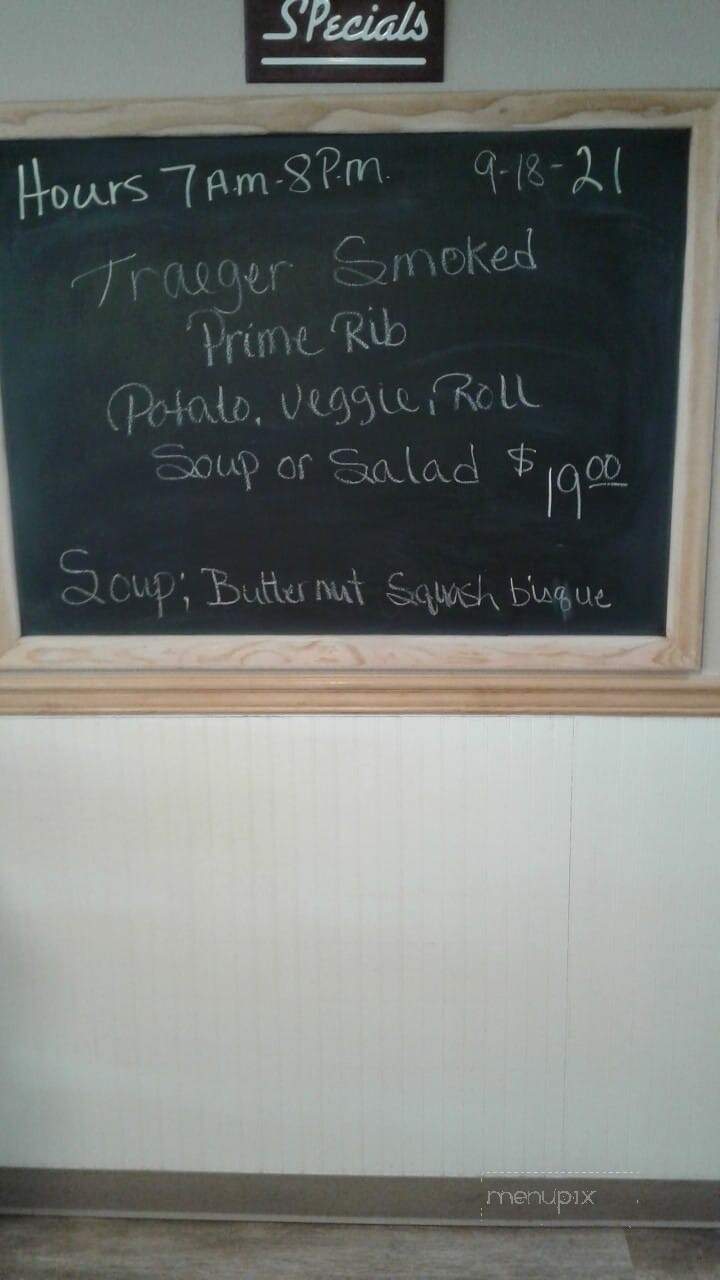 SPecials
Hours 7 A.m.-8 P.m. 9-18-21
Traeger Smoked
Prime Rib
Potato, veggie, Roll
Soup or Salad $19.00
Soup; Butternut Squash bisque
menupix